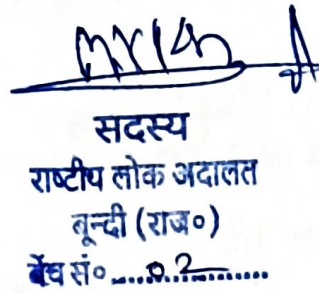 सदस्य
राष्टीय लोक अदालत
बून्दी (राज०)
बेंच सं० ....02.............